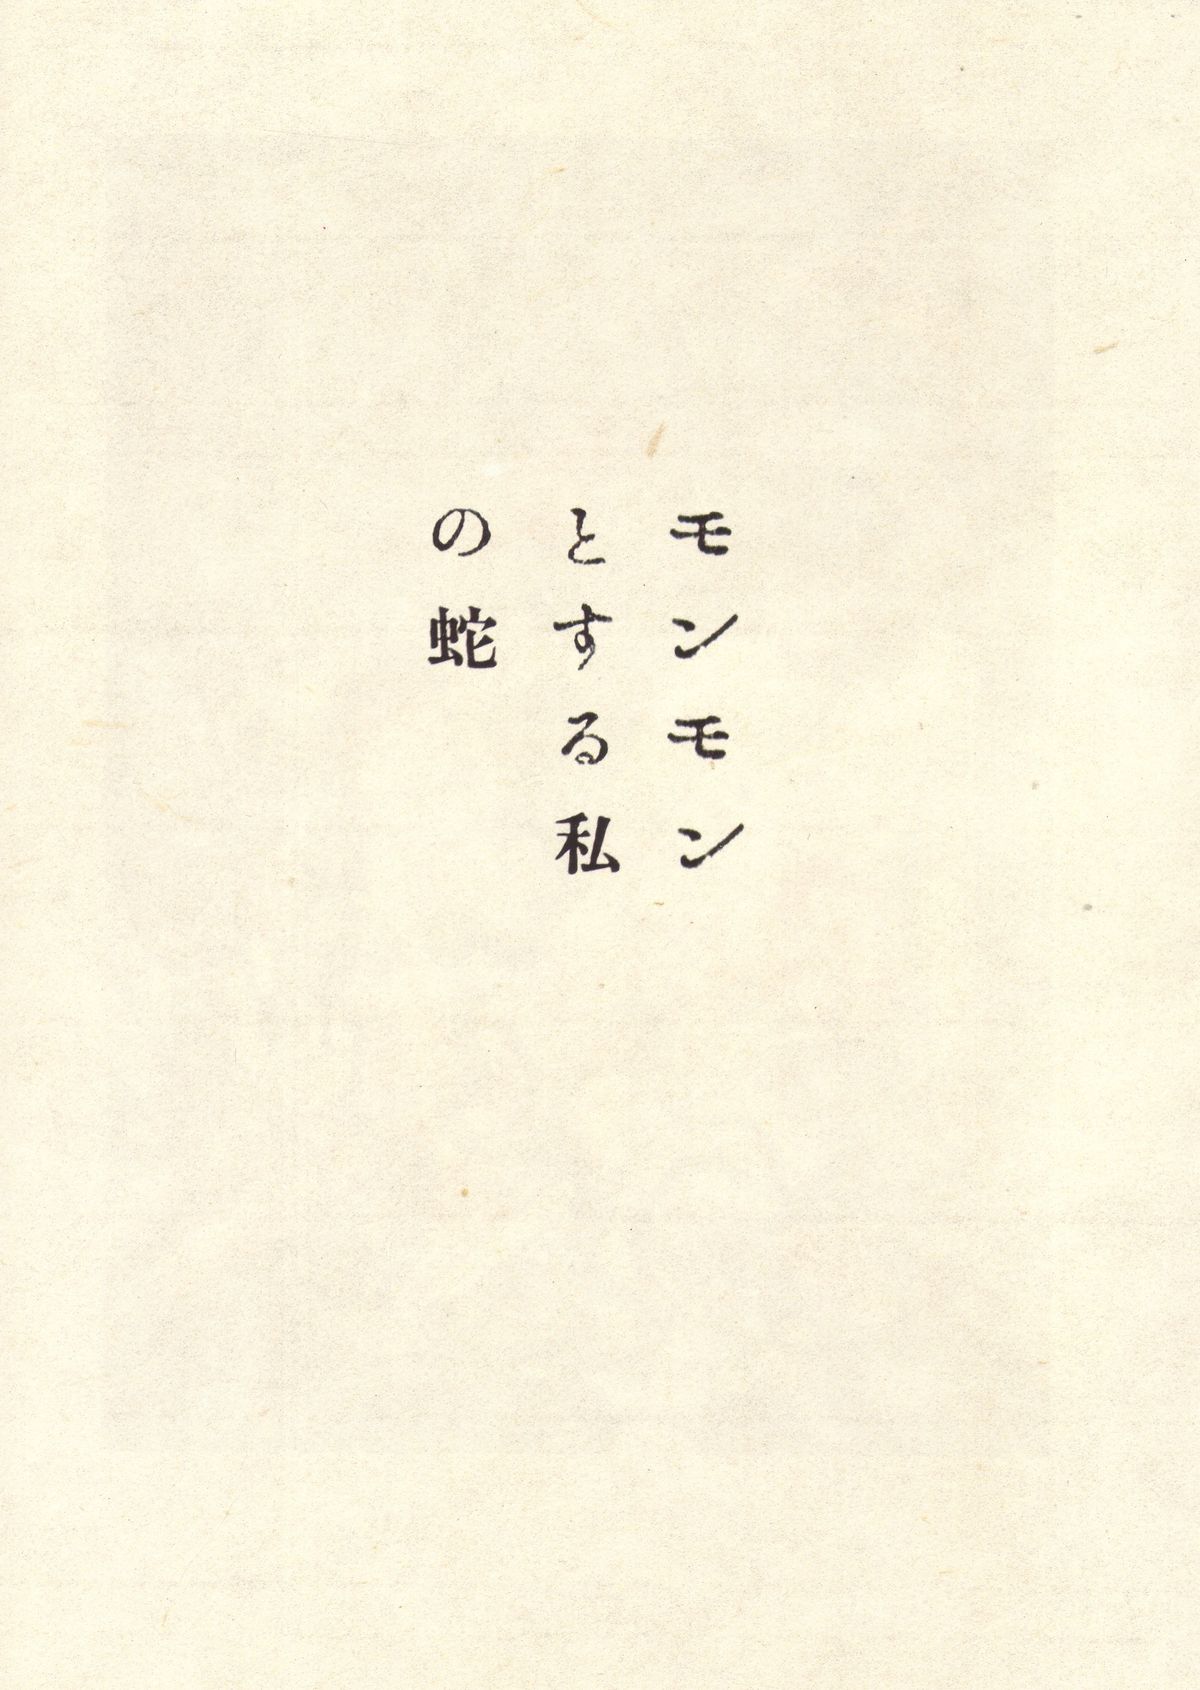 モンモン
とする私
の蛇